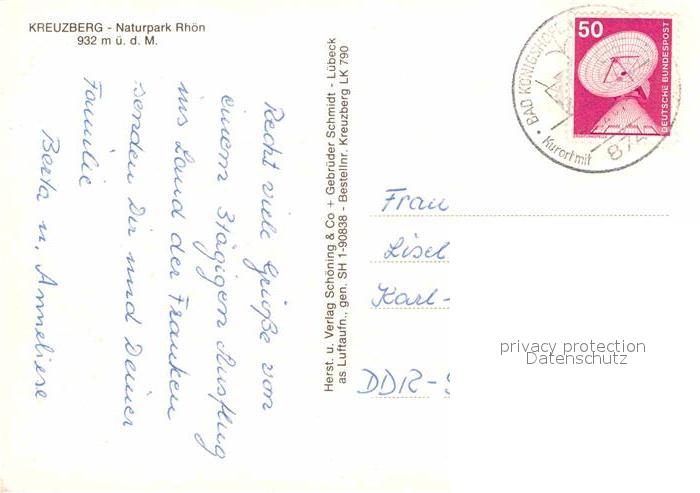 KREUZBERG - Naturpark Rhön
932 m ü. d. M.
Recht viele Grüße von
einem 3tägigen Ausflug
ins Land der Franken
senden Dir und Deiner
Familie
Berta u. Anneliese
Herst. u. Verlag Schöning & Co + Gebrüder Schmidt - Lübeck
as Luftaufn., gen. SH 1-90838 - Bestellnr. Kreuzberg LK 790
BAD KÖNIGSHOFEN
Kurort mit
874
50
DEUTSCHE BUNDESPOST
Frau
Lisel
Karl-
DDR-
privacy protection
Datenschutz